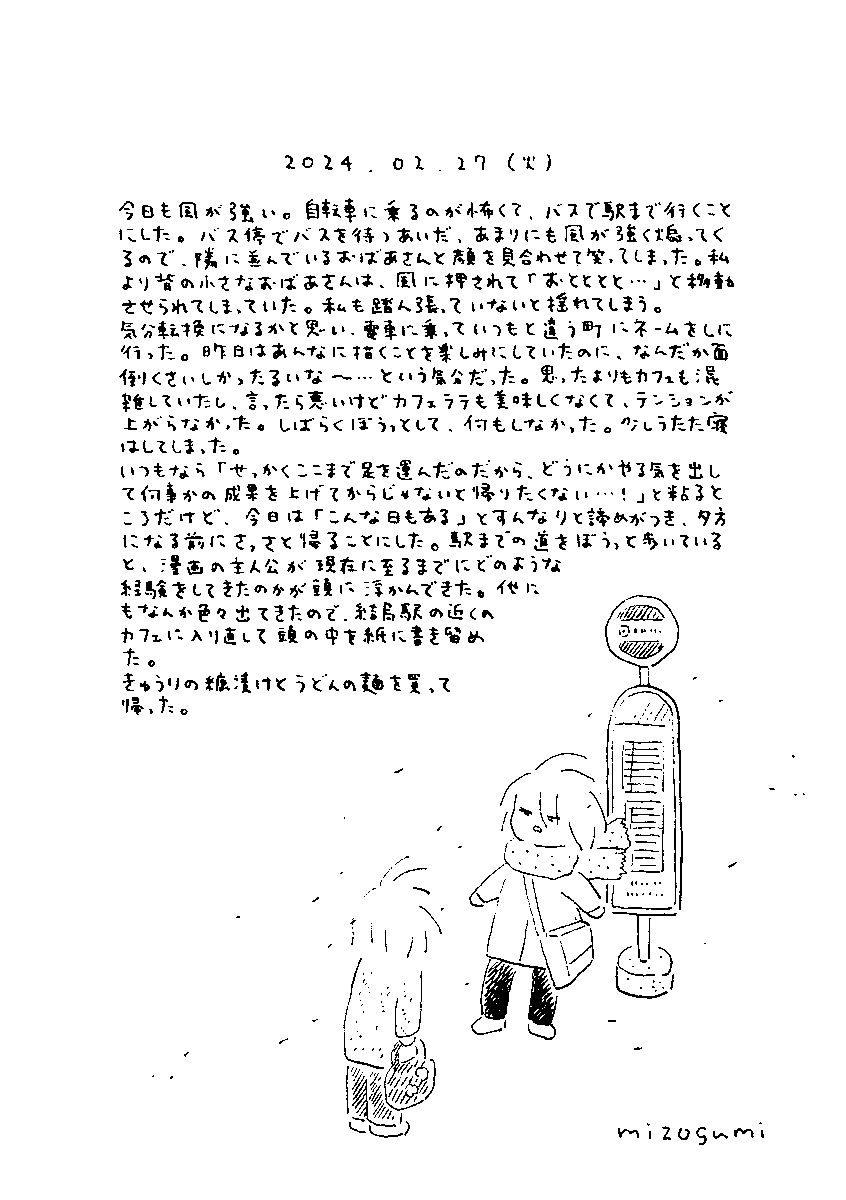 2024.02.27(火)
今日も風が強い。自転車に乗るのが怖くて、バスで駅まで行くこと
にした。バス停でバスを待つあいだ、あまりにも風が強く煽ってく
るので、隣に並んでいるおばあさんと顔を見合わせて笑ってしまった。私
より背の小さなおばあさんは、風に押されて「おとととと…」と移動
させられてしまっていた。私も踏ん張っていないと揺れてしまう。
気分転換になるかと思い、電車に乗っていつもと違う町にネームをしに
行った。昨日はあんなに描くことを楽しみにしていたのに、なんだか面
倒くさいしかったるいな〜…という気分だった。思ったよりもカフェも混
雑していたし、言ったら悪いけどカフェラテも美味しくなくて、テンションが
上がらなかった。しばらくぼうっとして、何もしなかった。少しうたた寝
はしてしまった。
いつもなら「せっかくここまで足を運んだのだから、どうにかやる気を出し
て何事かの成果を上げてからじゃないと帰りたくない…!」と粘ると
ころだけど、今日は「こんな日もある」とすんなりと諦めがつき、夕方
になる前にさっさと帰ることにした。駅までの道をぼうっと歩いている
と、漫画の主人公が現在に至るまでにどのような
経験をしてきたのかが頭に浮かんできた。他に
もなんか色々出てきたので、結局駅の近くの
カフェに入り直して頭の中を紙に書き留め
た。
きゅうりの糠漬けとうどんの麺を買って
帰った。
mizogumi